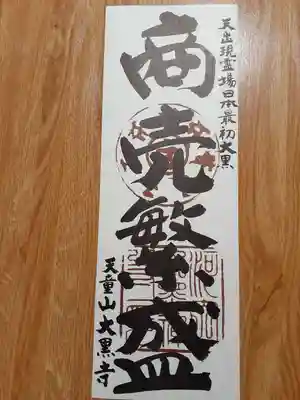 天出現霊場日本最初大黒
商売繁盛
天童山大黒寺